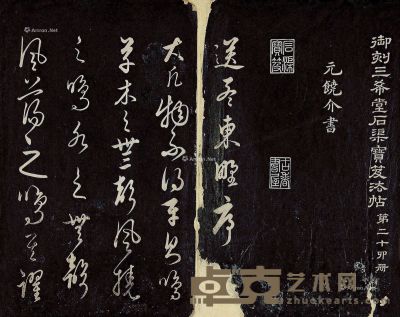 御刻三希堂石渠寶笈法帖 第二十四册
元饒介書
石渠寶笈
送孟東野序
大凡物不得平則鳴
草木之無聲風撓
之鳴水之無聲
風蕩之鳴其躍
卓克艺术网